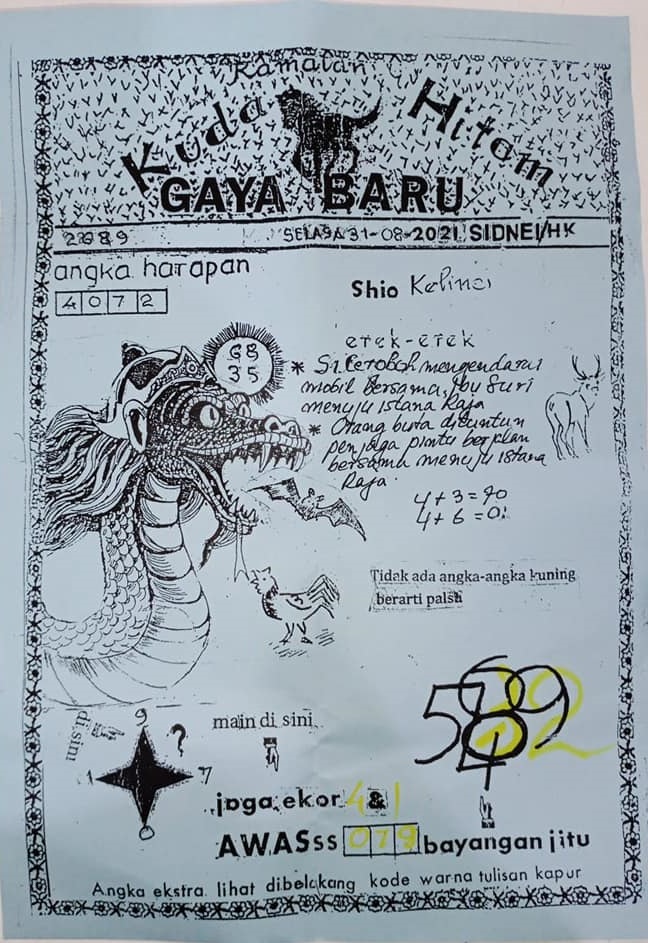 Ramalan
Kuda Hitam
GAYA BARU
2689 SELASA 31-08-2021 SIDNEI/HK
angka harapan
4072
Shio Kelinci
68
35
erek-erek
* Si Ceroboh mengendarai
mobil Bersama, Ibu Suri
menuju istana Raja
* Orang buta dituntun
penjaga pintu berjalan
bersama menuju istana
Raja.
4+3=70
4+6=01
Tidak ada angka-angka kuning
berarti palsu
di sini
9
?
1 7
0
main di sini
joga ekor 4 & 1
AWASss 079 bayangan jitu
Angka ekstra lihat dibelakang kode warna tulisan kapur